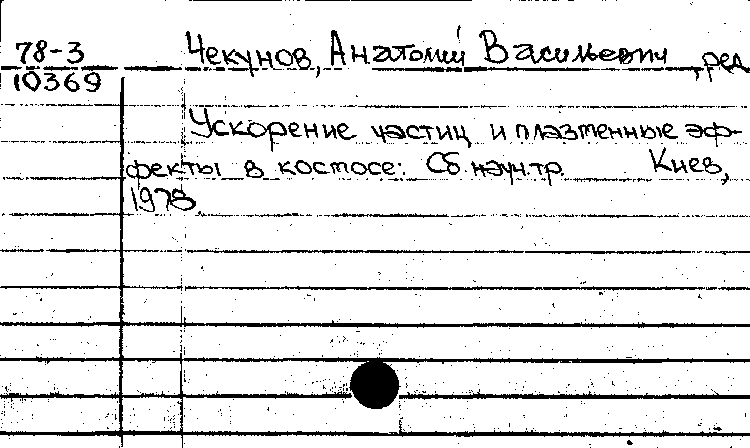 78-3 Чекунов, Анатолий Васильевич, ред
10369
Ускорение частиц и плазменные эф-
фекты в космосе: Сб. науч. тр. Киев,
1978.